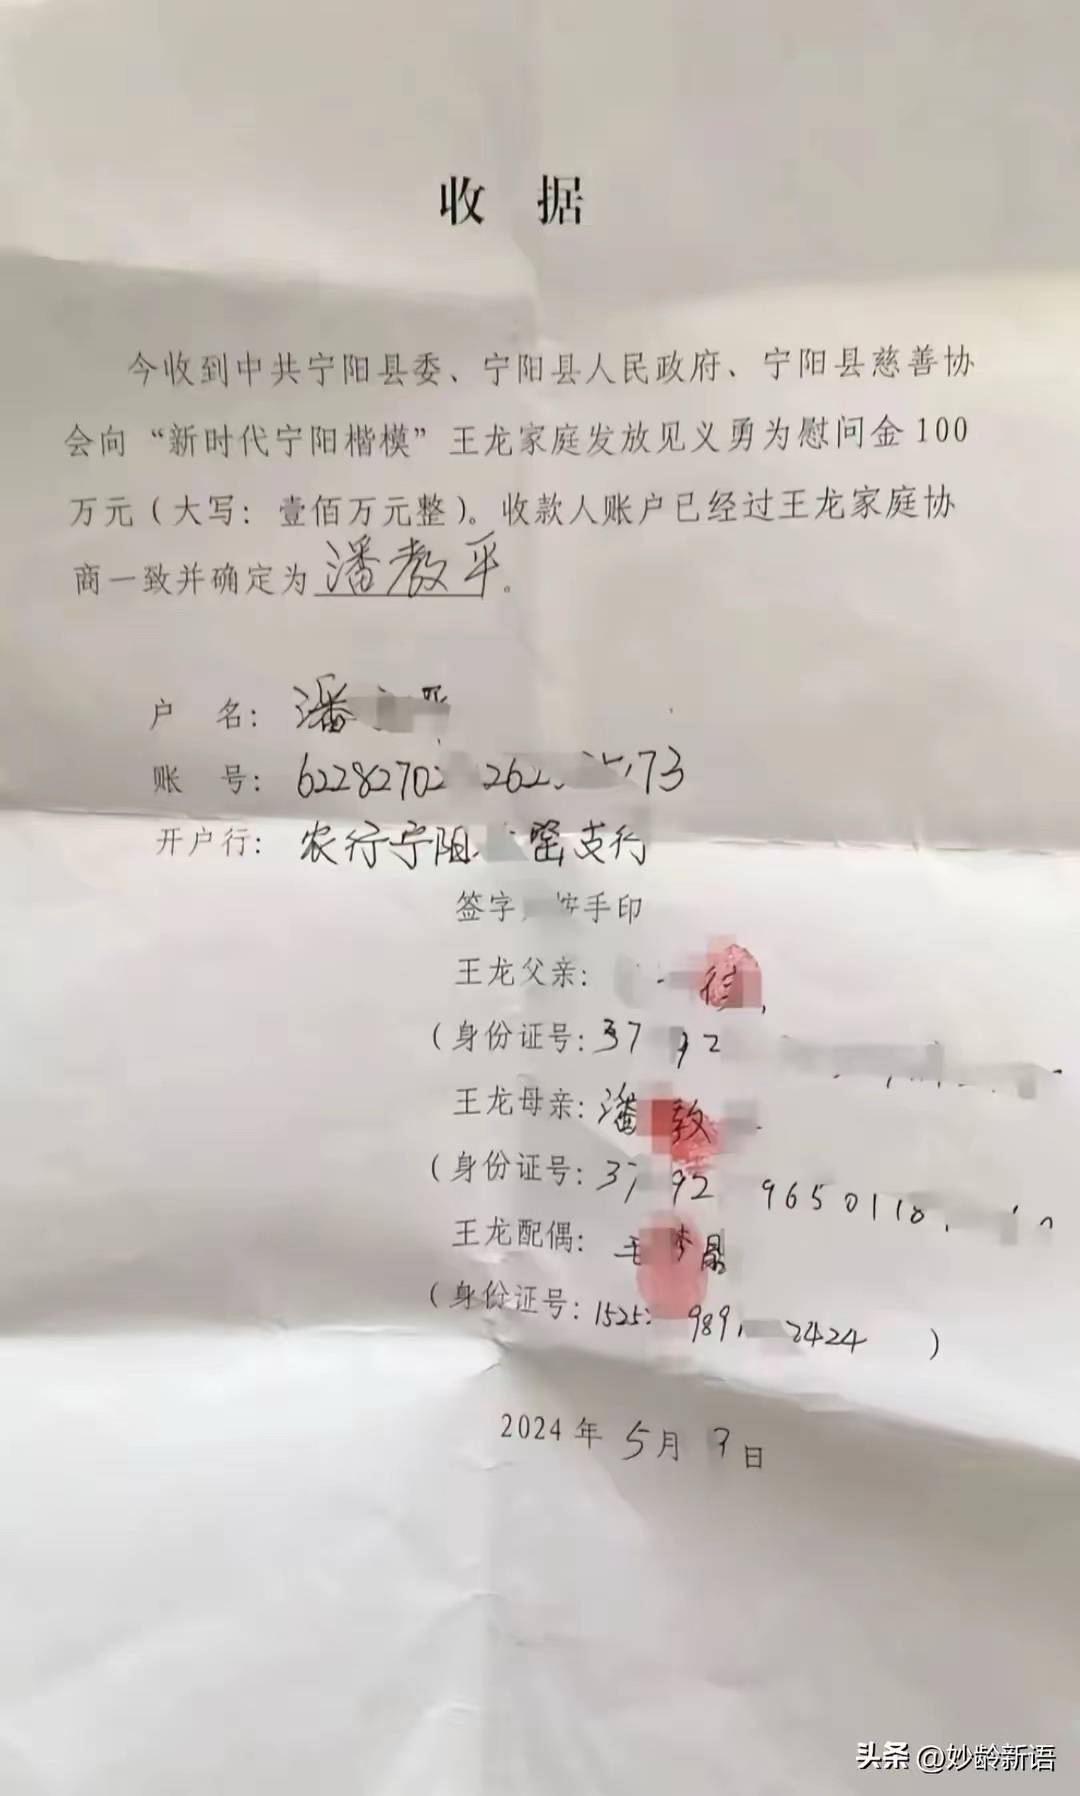 收 据
今收到中共宁阳县委、宁阳县人民政府、宁阳县慈善协
会向“新时代宁阳楷模”王龙家庭发放见义勇为慰问金100
万元（大写：壹佰万元整）。收款人账户已经过王龙家庭协
商一致并确定为潘教平。
户 名：潘
账 号：62282702 262 73
开户行：农行宁阳 窑支行
签字 按手印
王龙父亲：
（身份证号：37
王龙母亲：潘
（身份证号：37 92 9650110
王龙配偶：
（身份证号：1525 989 2424 ）
2024年 5月 日
头条 @妙龄新语